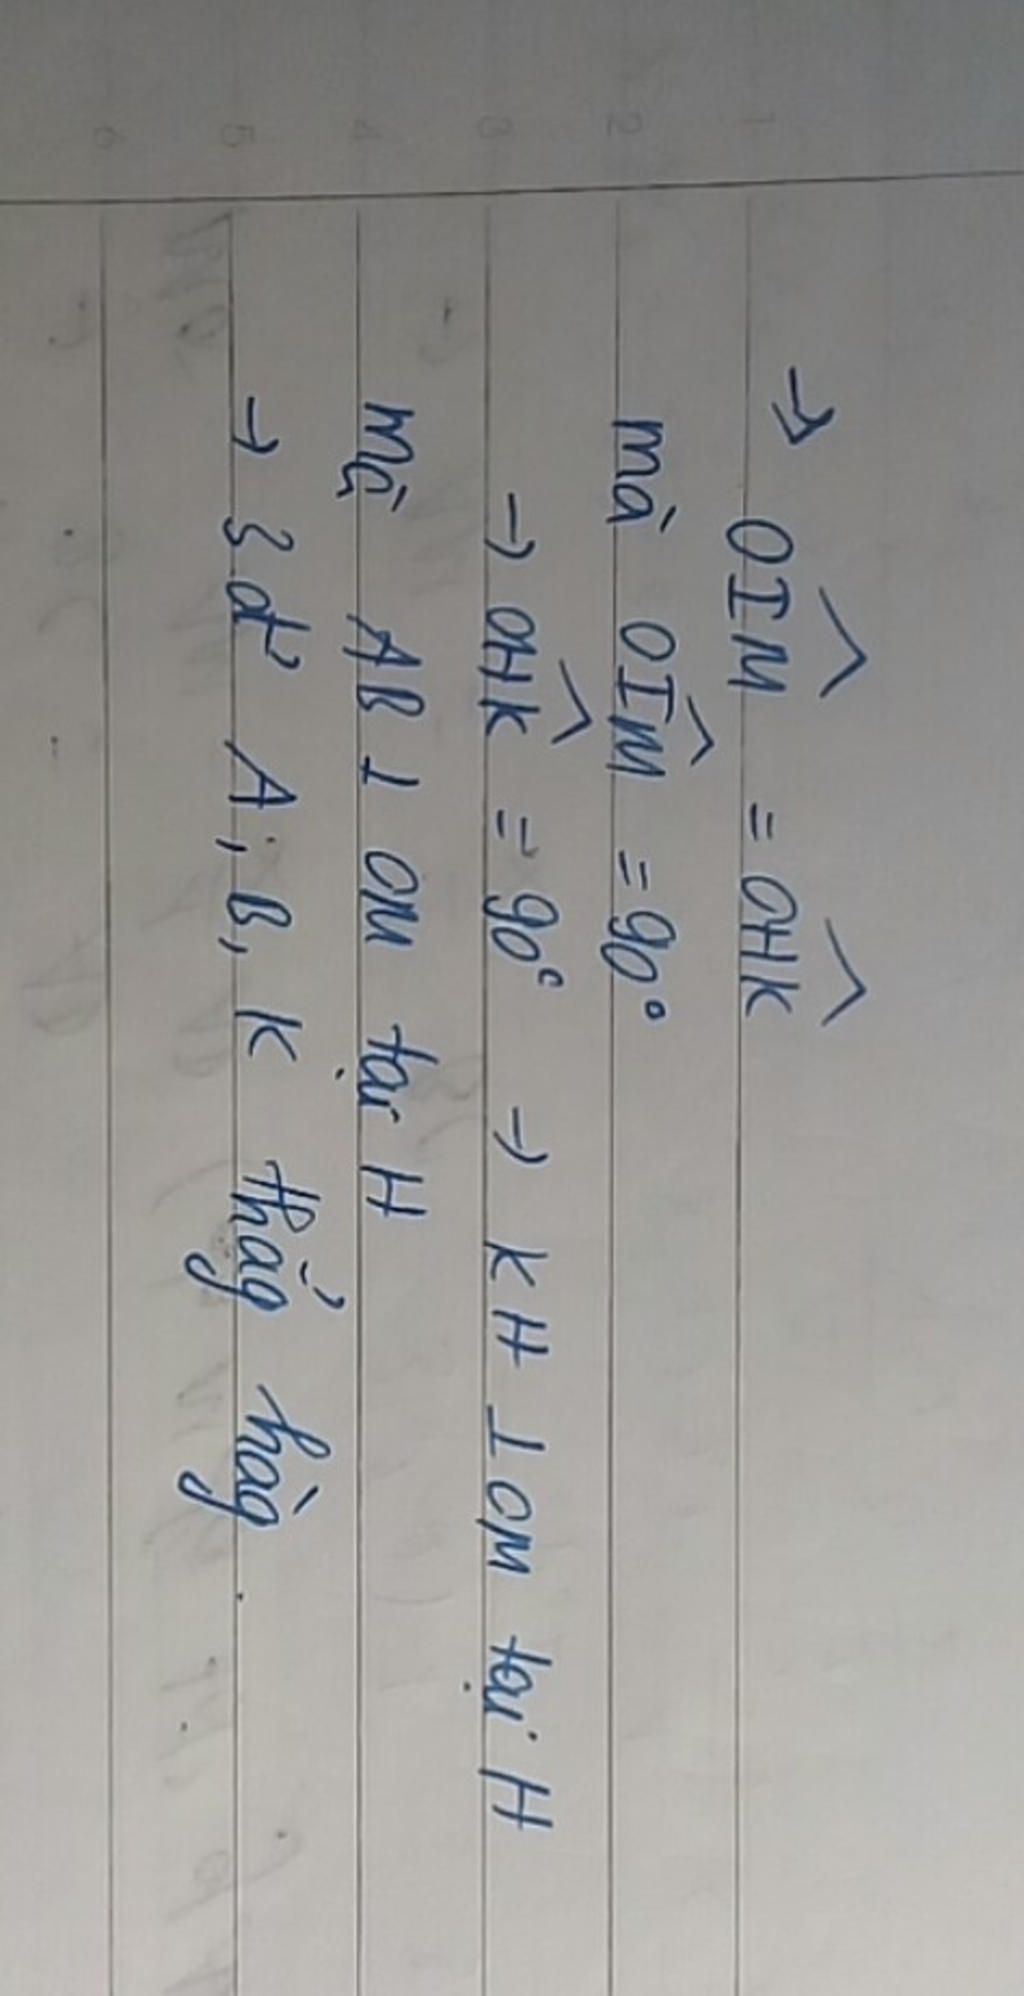 → OIM = OHK
mà OIM = 90°
→ OHK = 90° → KH ⊥ OM tại H
Mà AB ⊥ OM tại H
→ 3 đ' A, B, K thẳg hàg.